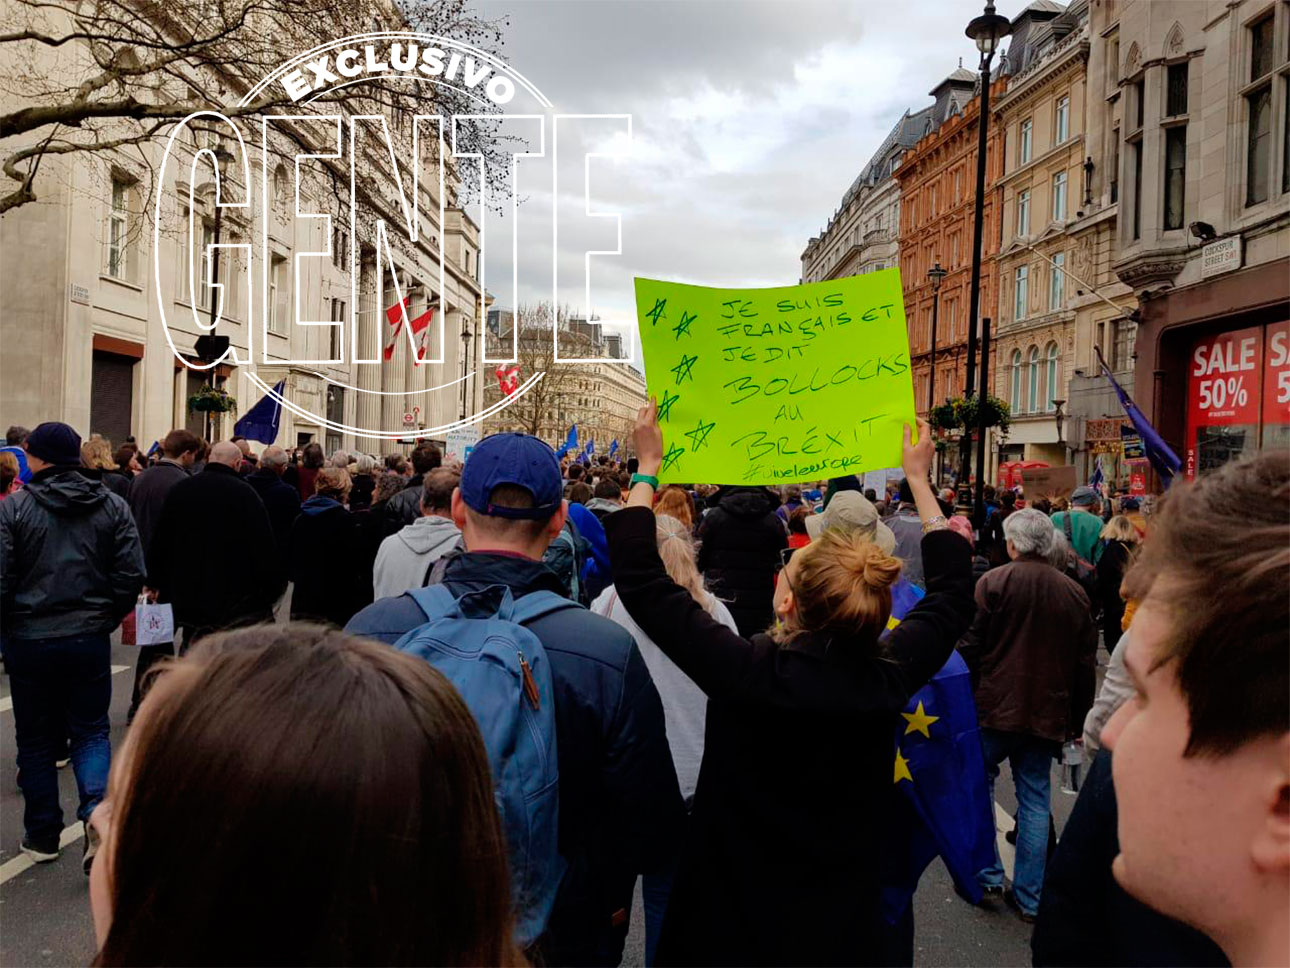 EXCLUSIVO
GENTE
JE SUIS
FRANÇAIS ET
JE DIT
BOLLOCKS
AU
BRÉXIT
COCKSPUR
STREET SW1
SALE
50%
SALE